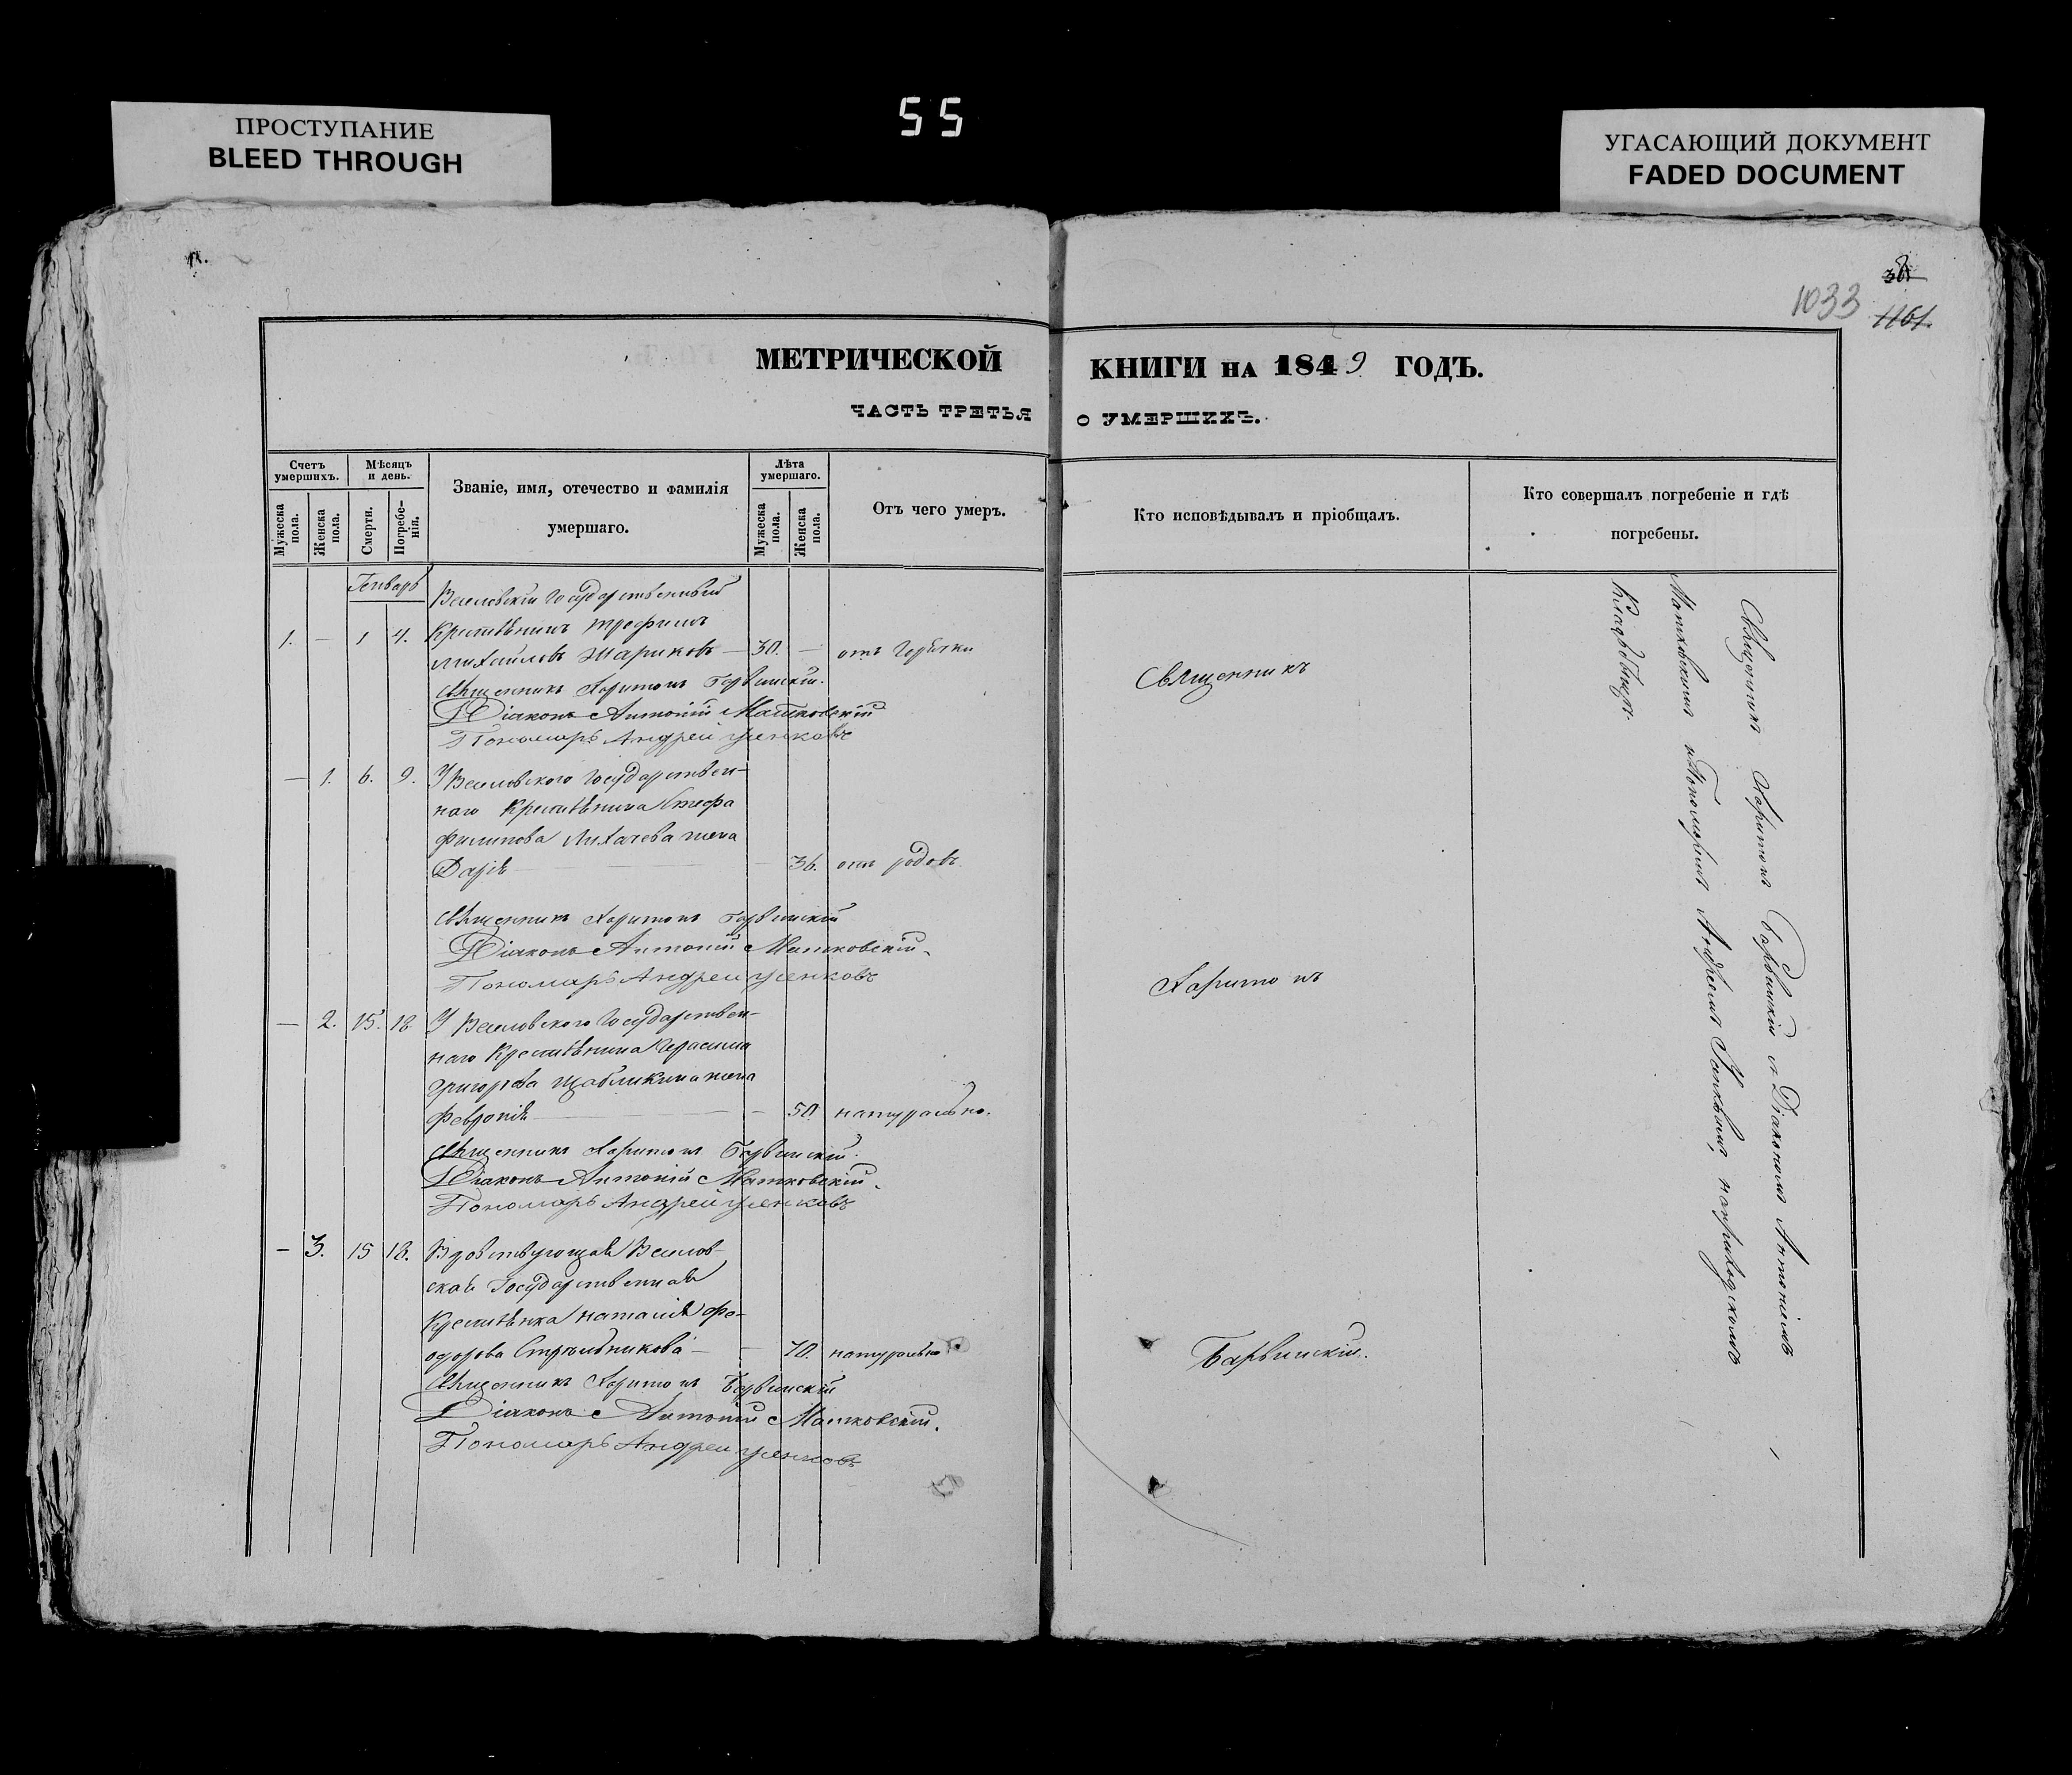 55
ПРОСТУПАНИЕ
BLEED THROUGH
УГАСАЮЩИЙ ДОКУМЕНТ
FADED DOCUMENT
1033
1161.
МЕТРИЧЕСКОЙ КНИГИ НА 1849 ГОДЪ.
ЧАСТЬ ТРЕТЬЯ О УМЕРШИХЪ.
Счетъ умершихъ.
Мужеска пола.
Женска пола.
Мѣсяцъ и день.
Смерти.
Погребенія.
Званіе, имя, отечество и фамилія
умершаго.
Лѣта умершаго.
Мужеска пола.
Женска пола.
Отъ чего умеръ.
Кто исповѣдывалъ и пріобщалъ.
Кто совершалъ погребеніе и гдѣ
погребены.
Генварь
Государственный
1. — 1 4. Крестьянинъ Трофимъ
Михайловъ Шариковъ — 30. — отъ горячки
Священникъ Харитонъ Барвинскій.
Діаконъ Антоній Матковскій
Пономарь Андрей
— 1. 6. 9. У Государствен-
наго Крестьянина
Филипова Лихачева жена
Дарія — 36. отъ родовъ
Священникъ Харитонъ Барвинскій
Діаконъ Антоній Матковскій.
Пономарь Андрей
— 2. 15. 18 У Государствен-
наго Крестьянина Герасима
Григорьева жена
Февронія — 50. натурально.
Священникъ Харитонъ Барвинскій.
Діаконъ Антоній Матковскій.
Пономарь Андрей
— 3. 15 18. Вдовствующая
ская Государственная
Крестьянка Наталія Фе-
одорова Стрѣльникова — — 70. натурально
Священникъ Харитонъ Барвинскій
Діаконъ Антоній Матковскій.
Пономарь Андрей
Священникъ
Харитонъ
Барвинскій.
Священникъ Харитонъ Барвинскій съ Діакономъ Антоніемъ
Матковскимъ и Пономаремъ Андреемъ на приходскомъ
Кладбищѣ.